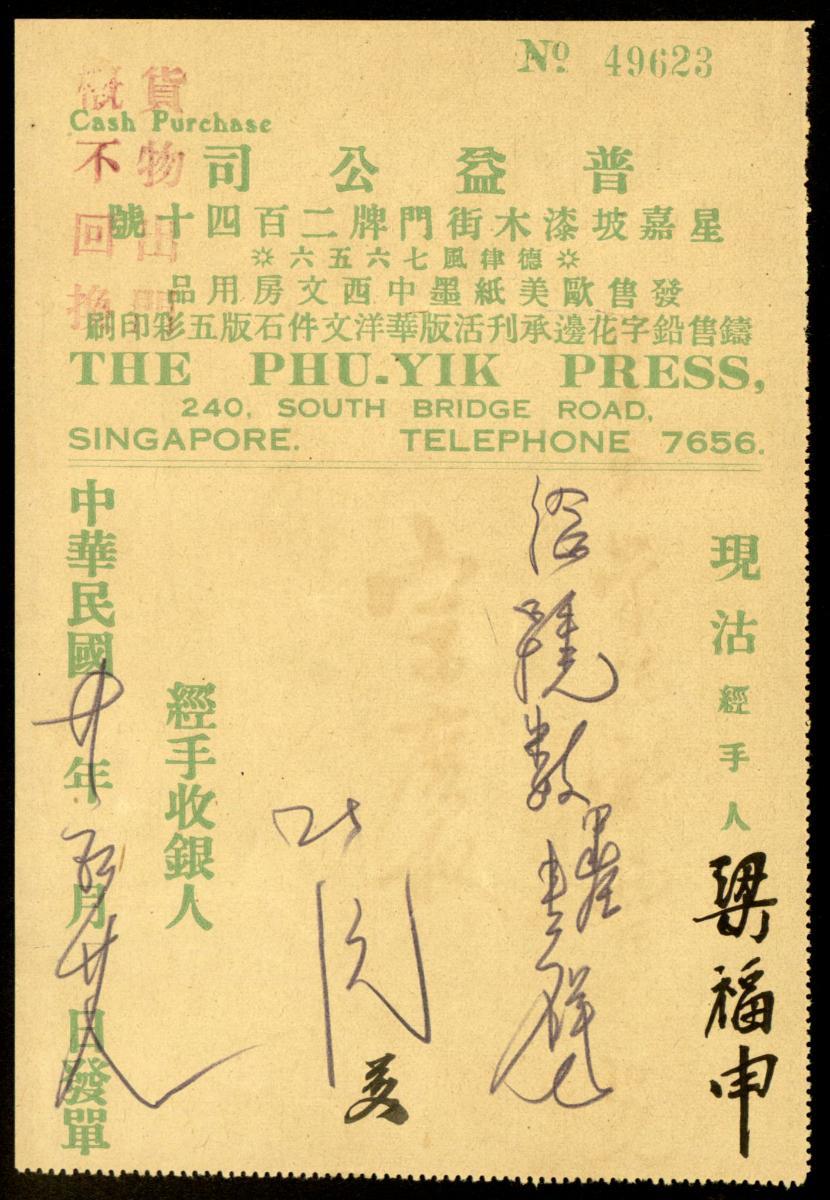 Nº 49623
Cash Purchase
貨物出門
概不回換
普益公司
星嘉坡漆木街門牌二百四十號
德律風七六五六
發售歐美紙墨中西文房用品
鑄售鉛字花邊承刊活版華洋文件石版五彩印刷
THE PHU-YIK PRESS,
240, SOUTH BRIDGE ROAD,
SINGAPORE. TELEPHONE 7656.
現沽經手人 梁福申
經手收銀人
中華民國廿年 月廿 日發單